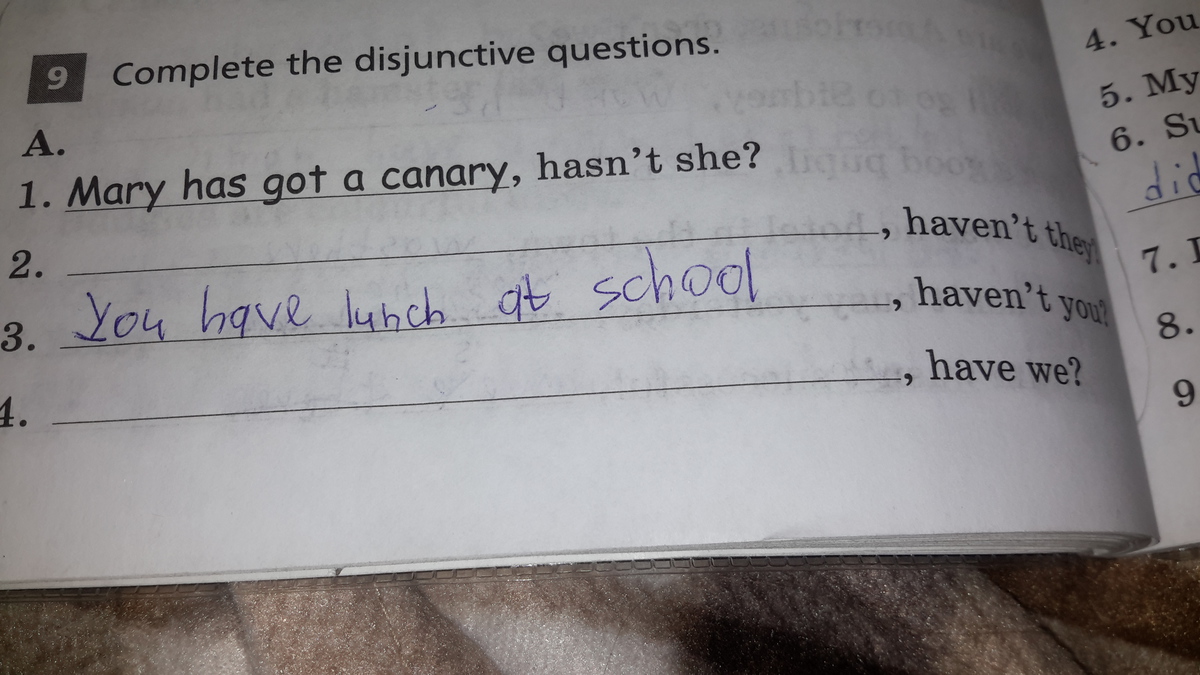 9 Complete the disjunctive questions.
A.
1. Mary has got a canary, hasn't she?
2. , haven't they?
3. You have lunch at school, haven't you?
4. , have we?
4. You
5. My
6. Su
did
7.
8.
9